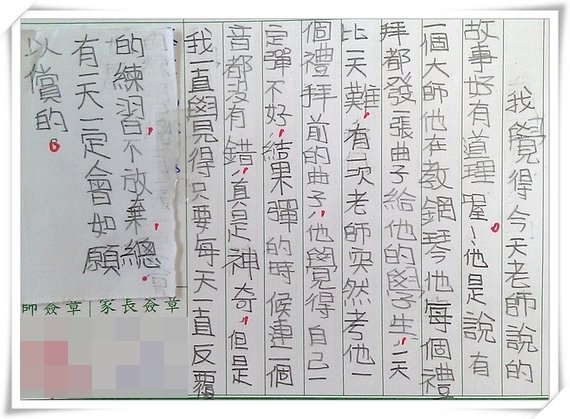 我覺得今天老師說的
故事好有道理喔!他是說有
一個大師他在教鋼琴他每個禮
拜都發一張曲子給他的學生,一天
比一天難,有一次老師突然考他一
個禮拜前的曲子,他覺得自己一
定彈不好,結果彈的時候連一個
音都沒有錯,真是神奇,但是
我一直覺得只要每天一直反覆
的練習,不放棄,總
有一天一定會如願
以償的。
師簽章 家長簽章